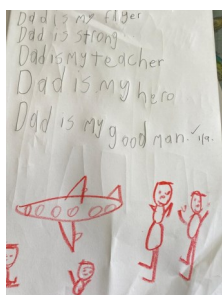 Dad is my
Dad is strong
Dad is my teacher
Dad is my hero
Dad is my good man.